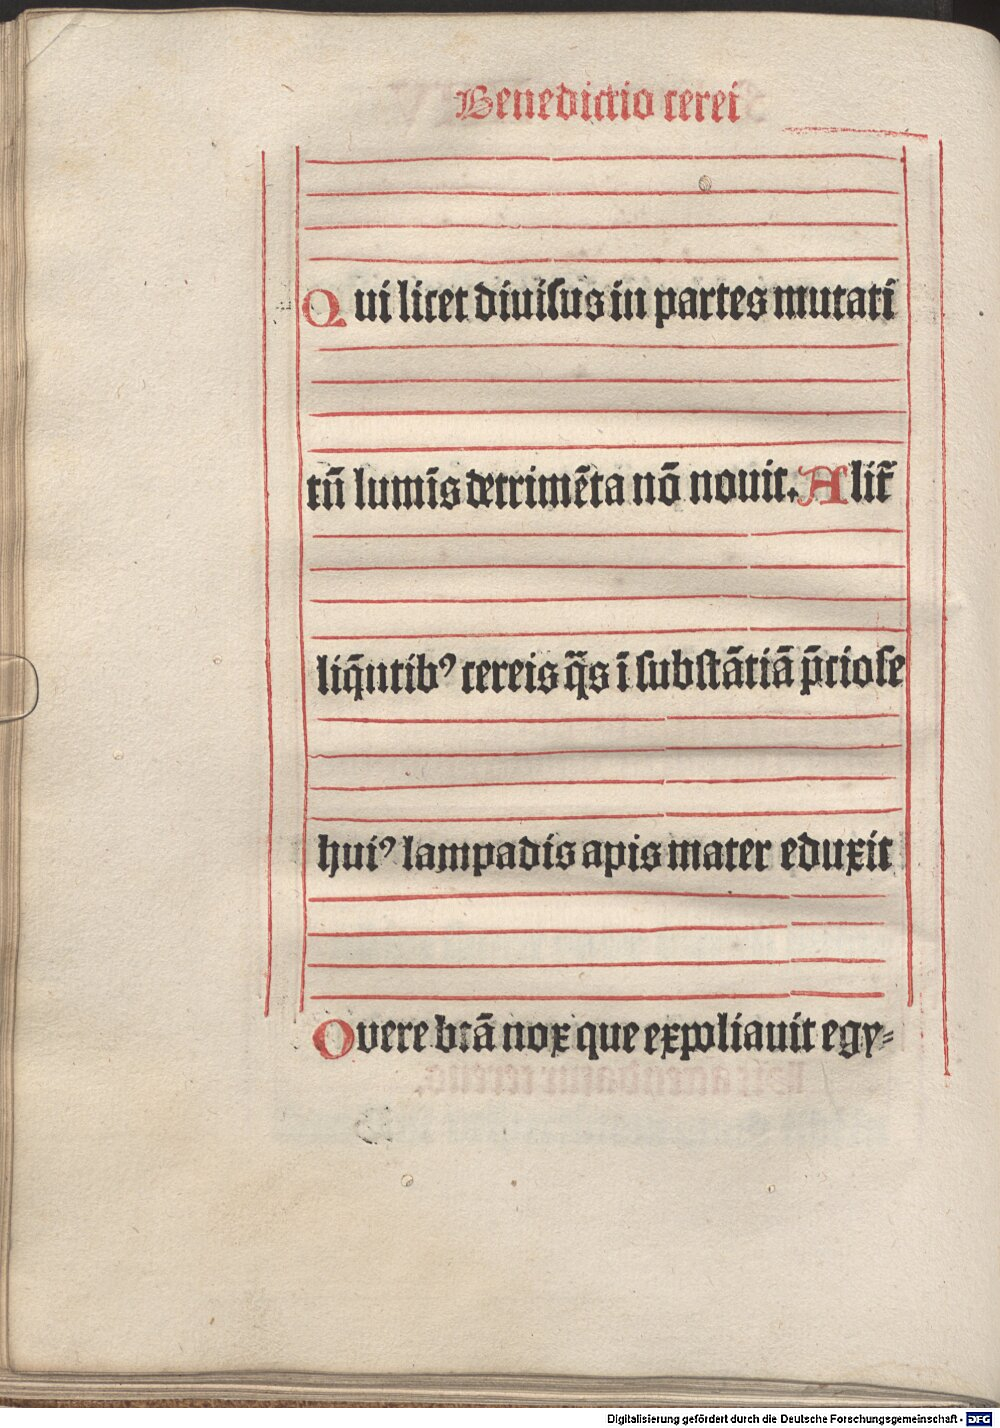 Benedictio cerei
Qui licet diuisus in partes mutati
tñ lumīs detrimēta nō nouit. Alit̃
liq̄ntibꝰ cereis q̄s ī substātiā p̄ciose
huiꝰ lampadis apis mater eduxit
O vere btā nox que expoliauit egy⸗
Digitalisierung gefördert durch die Deutsche Forschungsgemeinschaft - DFG